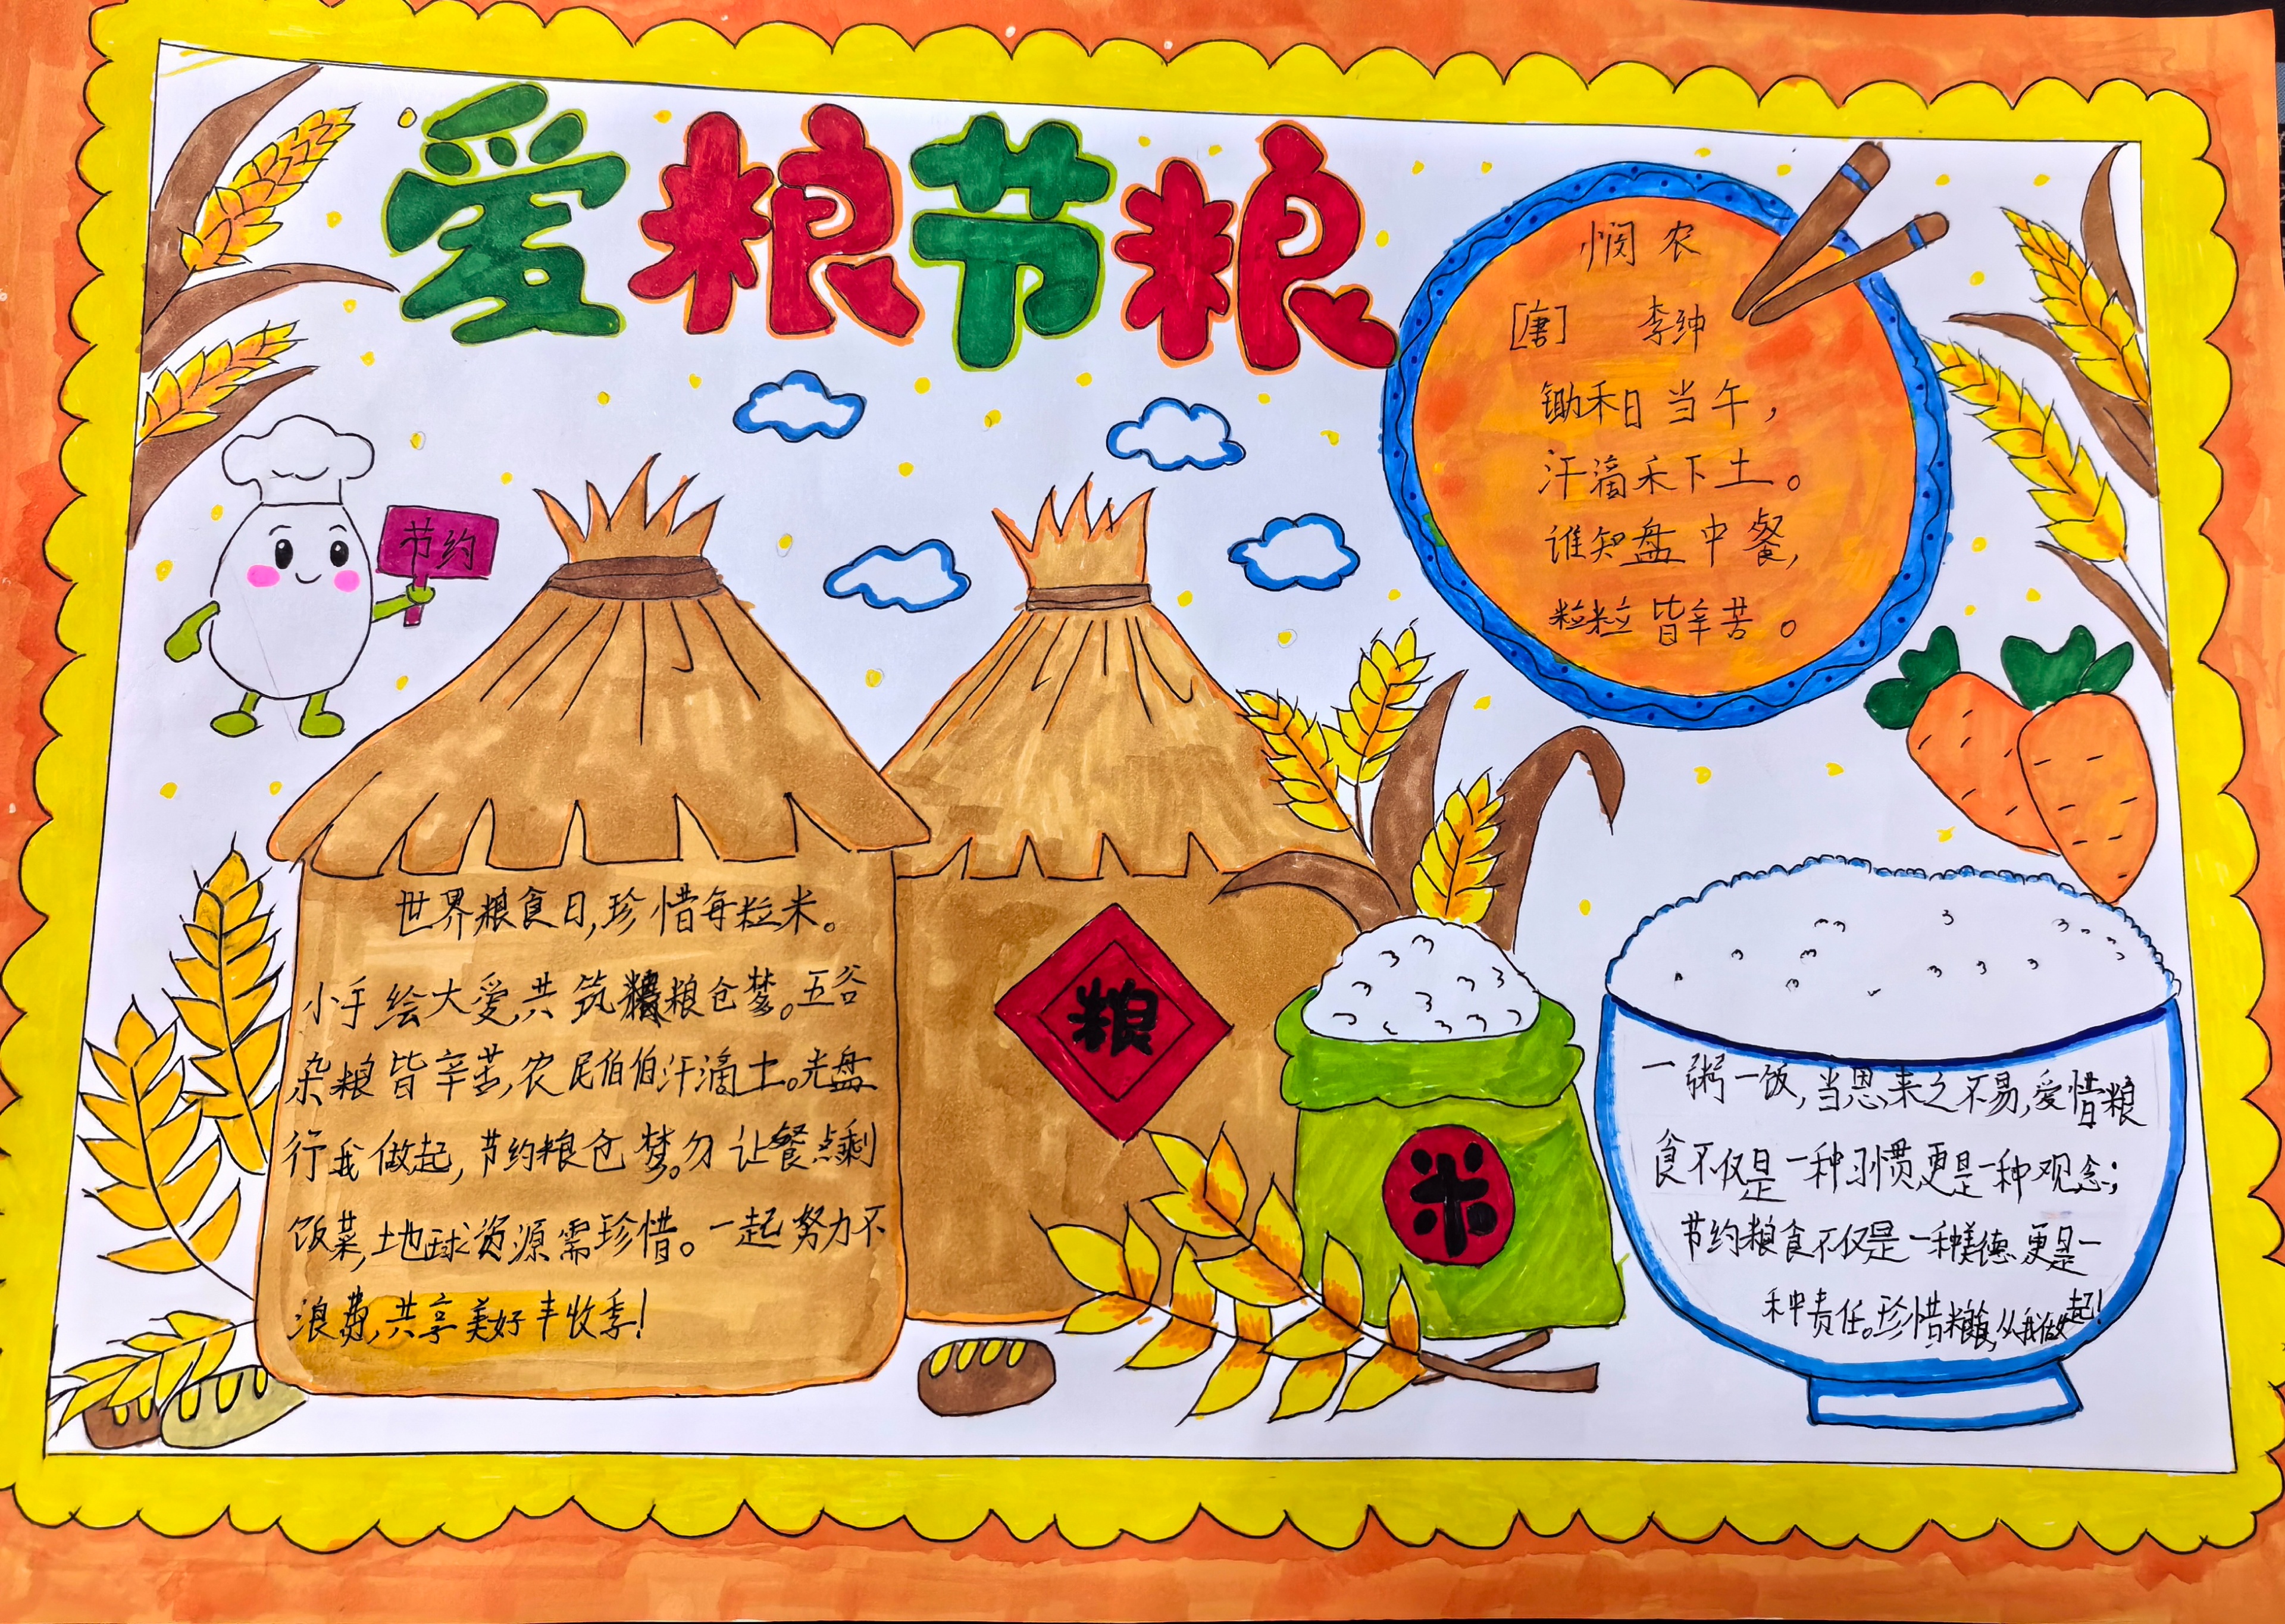 爱粮节粮
悯农
[唐] 李绅
锄禾日当午，
汗滴禾下土。
谁知盘中餐，
粒粒皆辛苦。
节约
世界粮食日，珍惜每粒米。
小手绘大爱，共筑粮仓梦。五谷
杂粮皆辛苦，农民伯伯汗滴土。光盘
行我做起，节约粮仓梦。勿让餐点剩
饭菜，地球资源需珍惜。一起努力不
浪费，共享美好丰收季！
粮
米
一粥一饭，当思来之不易，爱惜粮
食不仅是一种习惯更是一种观念；
节约粮食不仅是一种美德更是一
种责任。珍惜粮食，从我做起！